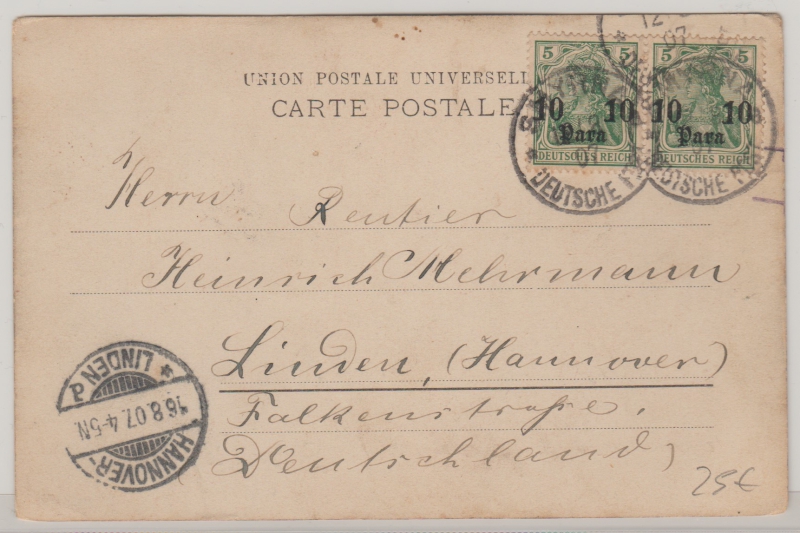 UNION POSTALE UNIVERSELL
CARTE POSTALE
5 5 5 5
10 10 10 10
Para Para
DEUTSCHES REICH DEUTSCHES REICH
12
07
SMYRNA
DEUTSCHE
Herrn Rentier
Heinrich Mehrmann
Linden, (Hannover)
Falkenstraße,
Deutschland)
* LINDEN
16.8.07.4-5N
HANNOVER-
25€